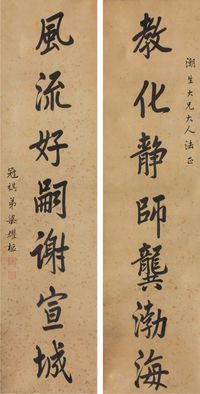 潮生大兄大人法正
教化静師龔渤海
風流好嗣谢宣城
冠祺弟梁耀枢